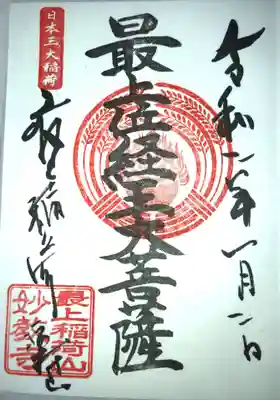 令和二年一月二日
最上位経王大菩薩
日本三大稲荷
最上稲荷
最上稲荷山
妙教寺